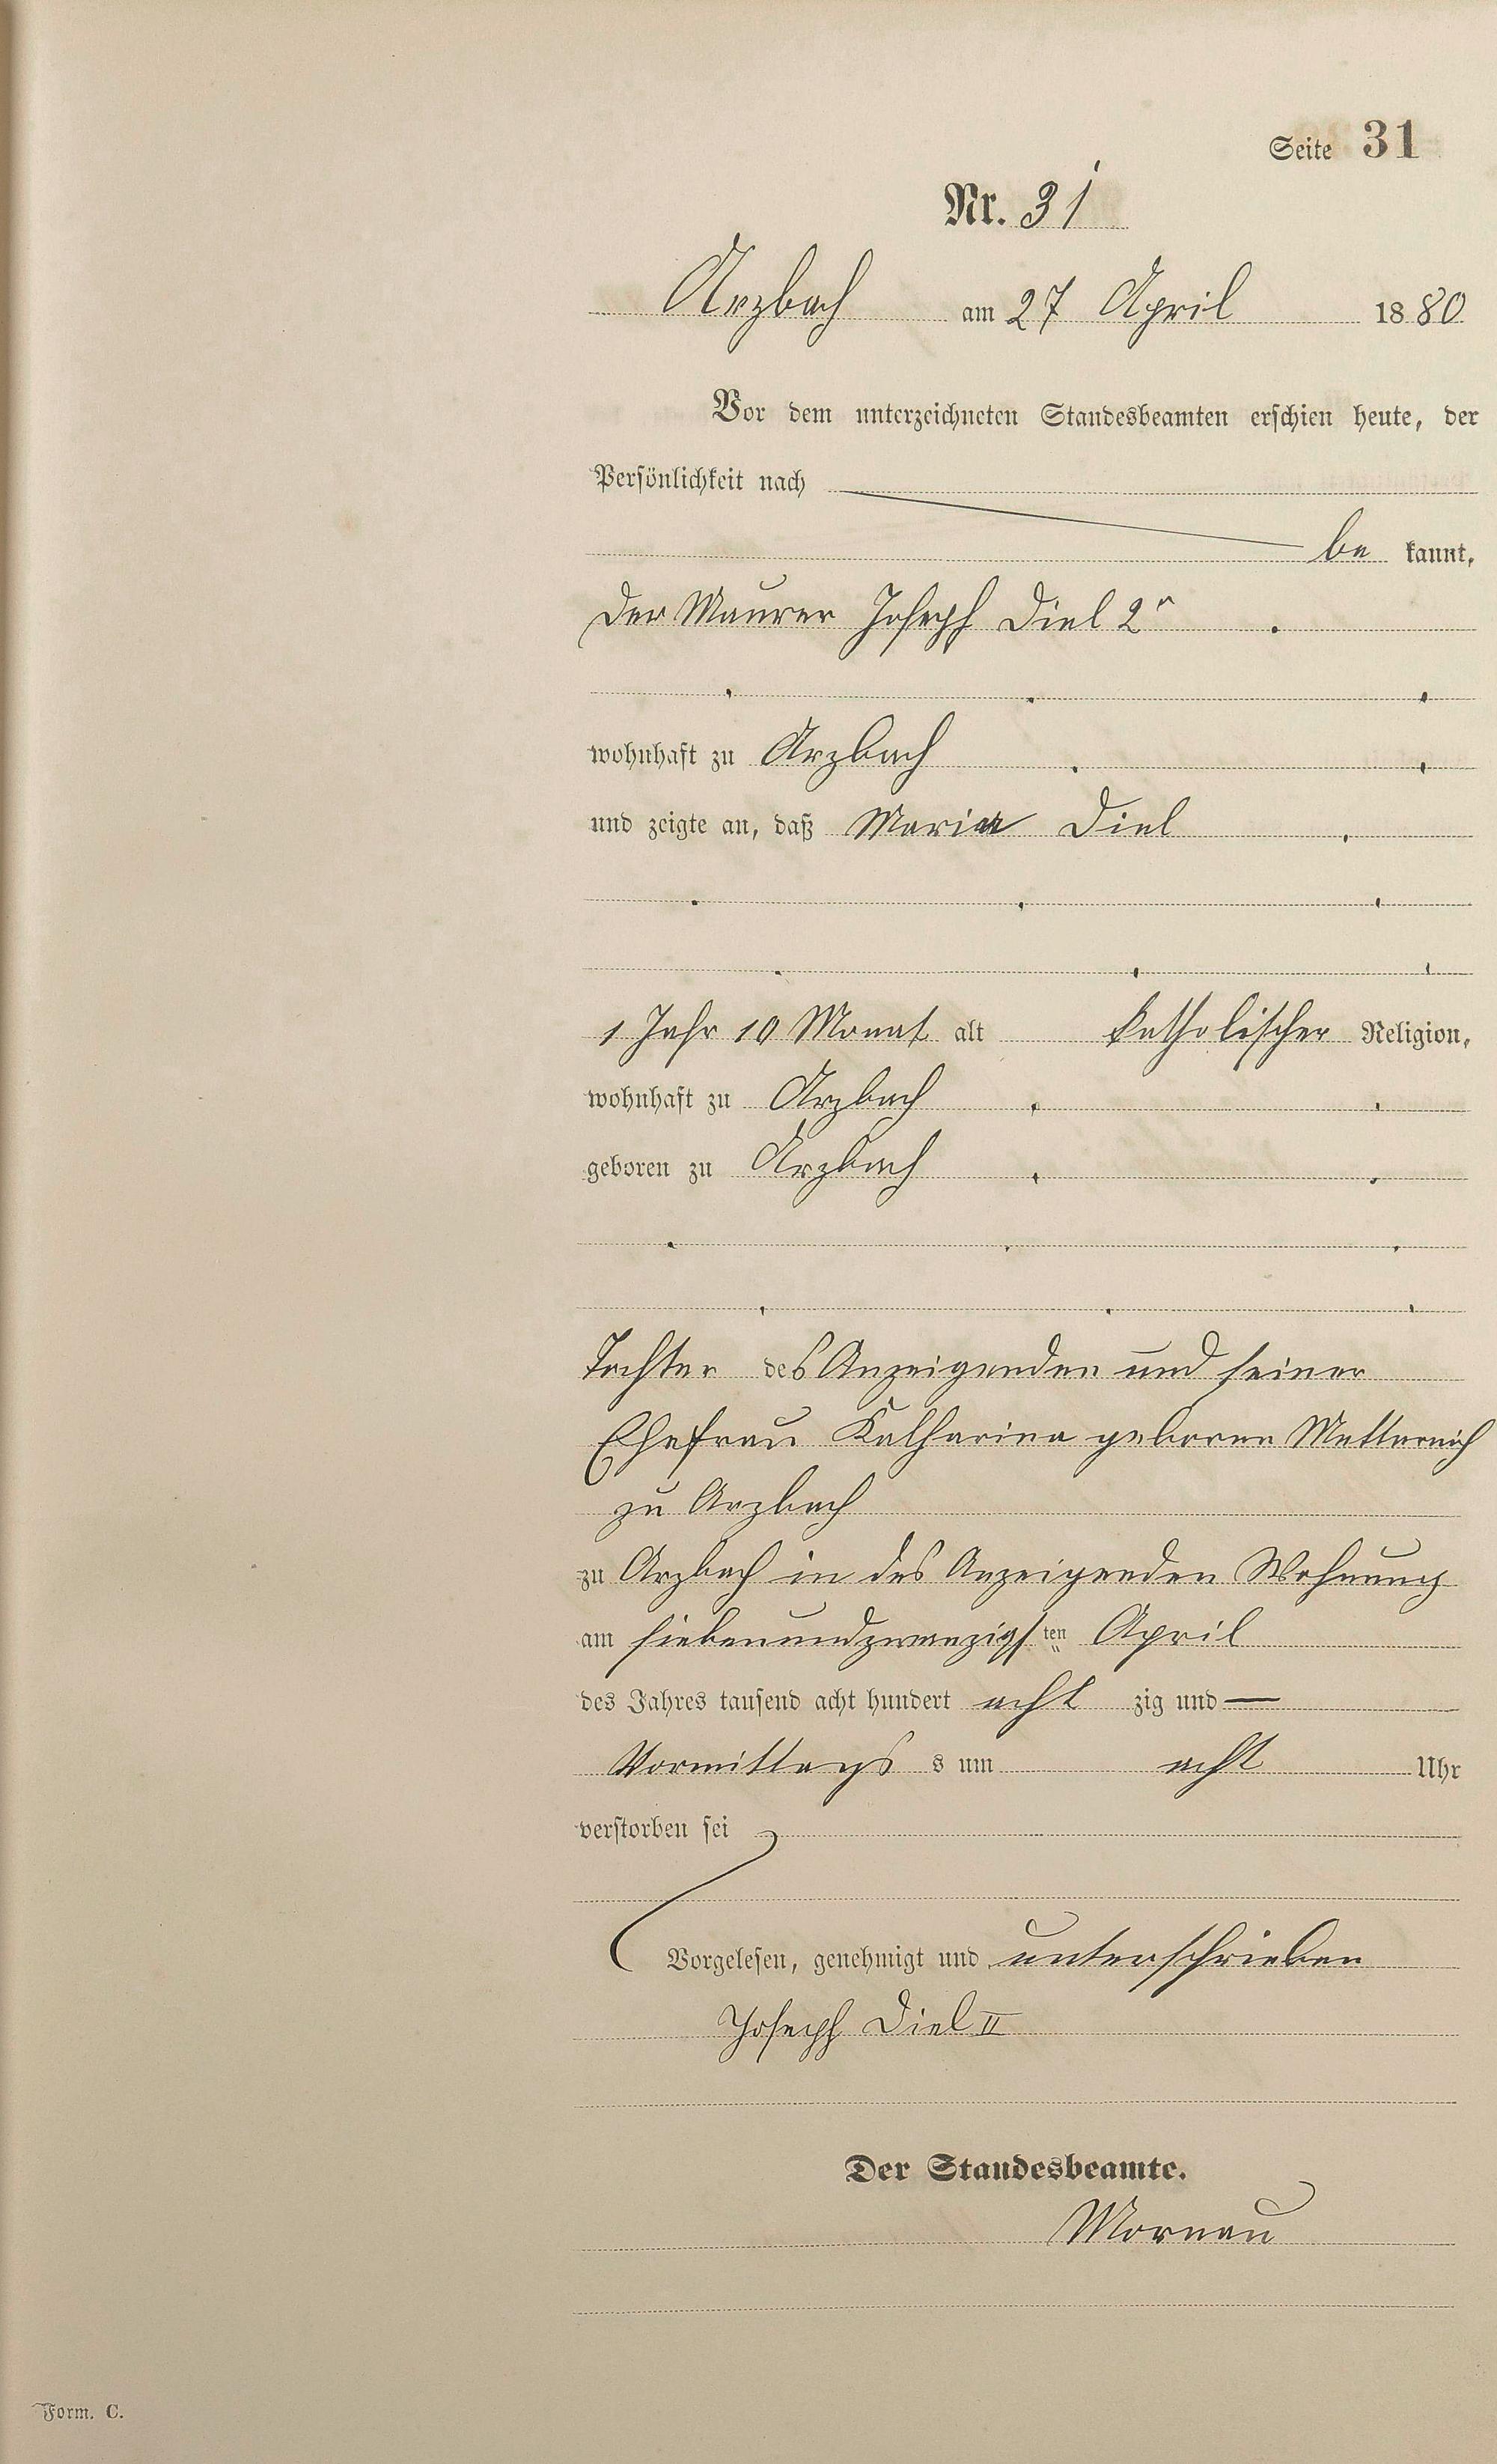 Seite 31
Nr. 31
Arzbach am 27 April 1880
Vor dem unterzeichneten Standesbeamten erschien heute, der
Persönlichkeit nach
be kannt,
der Maurer Joseph Diel 2r
wohnhaft zu Arzbach
und zeigte an, daß Maria Diel
1 Jahr 10 Monat alt katholischer Religion,
wohnhaft zu Arzbach
geboren zu Arzbach
Tochter des Anzeigenden und seiner
Ehefrau Katharina geborene Metternich
zu Arzbach
zu Arzbach in des Anzeigenden Wohnung
am siebenundzwanzigsten April
des Jahres tausend acht hundert acht zig und —
Vormittags s um acht Uhr
verstorben sei
Vorgelesen, genehmigt und unterschrieben
Joseph Diel II
Der Standesbeamte.
Mornau
Form. C.